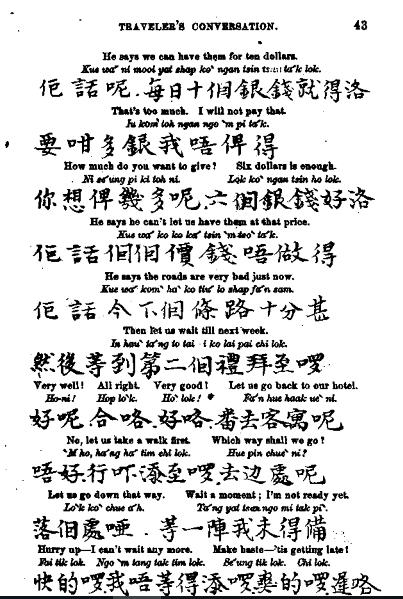 TRAVELER'S CONVERSATION. 43
He says we can have them for ten dollars.
Kue wa' ni mooi yat shap ko' ngan tsin ta'k lok.
佢話呢每日十個銀錢就得洛
That's too much. I will not pay that.
Iu kom' toh ngan ngo 'm pi ta'k.
要咁多銀我唔俾得
How much do you want to give? Six dollars is enough.
Ni se'ung pi ki toh ni. Lok ko' ngan tsin ho lok.
你想俾幾多呢六個銀錢好洛
He says he can't let us have them at that price.
Kue wa' ko ko ka' tsin 'm tso' ta'k.
佢話個個價錢唔做得
He says the roads are very bad just now.
Kue wa' kom' ha' ko tiu' lo shap fa'n sam.
佢話今下個條路十分甚
Then let us wait till next week.
In hau' ta'ng to tai i ko lai pai chi lok.
然後等到第二個禮拜至啰
Very well! All right. Very good! Let us go back to our hotel.
Ho-ni! Hop lo'k. Ho' lok! Fa'n hue haak ue' ni.
好呢合咯好咯番去客寓呢
No, let us take a walk first. Which way shall we go?
'M ho, ha'ng ha' tim chi lok. Hue pin chue' ni?
唔好行吓添至啰去边處呢
Let us go down that way. Wait a moment; I'm not ready yet.
Lo'k ko' chue a'h. Ta'ng yat tsan ngo mi tak pi'.
落個處啞等一陣我未得備
Hurry up—I can't wait any more. Make haste—'tis getting late!
Fai tik lok. Ngo 'm tang tak tim lok. Se'ung tik lok. Chi lok.
快的啰我唔等得添啰爽的啰遲咯